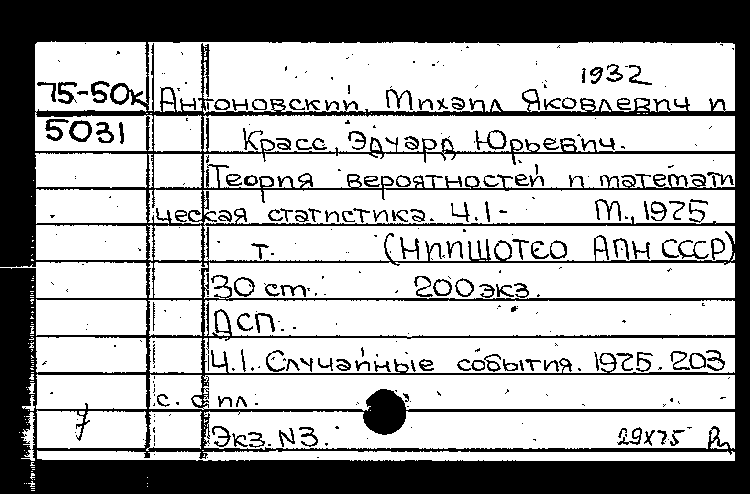 1932
75-50к Антоновский, Михаил Яковлевич и
5031 Красс, Эдуард Юрьевич.
Теория вероятностей и математи
ческая статистика. Ч.1- М., 1975.
т. (НИИШОТСО АПН СССР)
30 см. 200 экз.
ДСП.
Ч.1. Случайные события. 1975. 203
с. с ил.
Экз. N3. 29х75